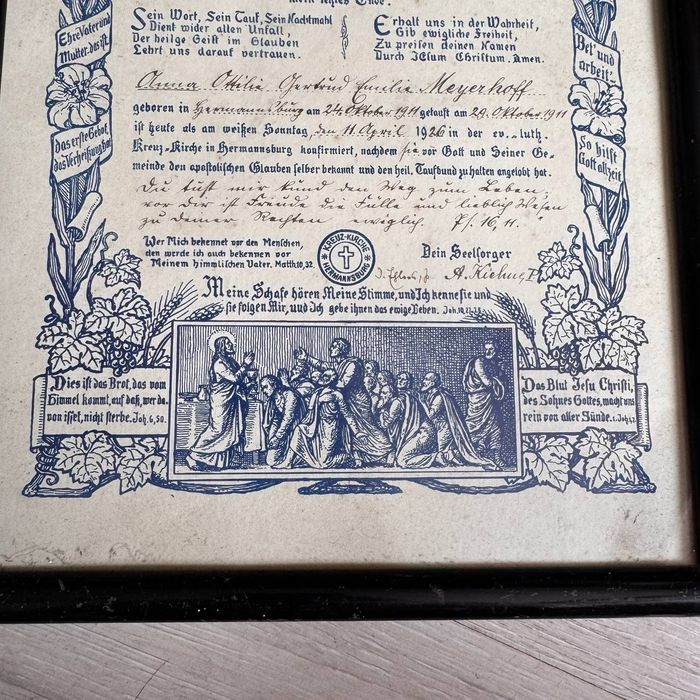 mein letztes Ende.
Sein Wort, Sein Tauf, Sein Nachtmahl
Dient wider allen Unfall,
Der heilge Geist im Glauben
Lehrt uns darauf vertrauen.
Erhalt uns in der Wahrheit,
Gib ewigliche Freiheit,
Zu preisen deinen Namen
Durch JEsum Christum. Amen.
Ehre Vater und
Mutter, das ist
das erste Gebot,
das Verheißung hat
Bet' und
arbeit'!
So hilft
Gott allzeit.
Anna Ottilie Gertrud Emilie Meyerhoff
geboren in Hermannsburg am 24. Oktober 1911 getauft am 29. Oktober 1911
ist heute als am weißen Sonntag, den 11. April 1926 in der ev.-luth.
Kreuz-Kirche in Hermannsburg konfirmiert, nachdem sie vor Gott und Seiner Ge-
meinde den apostolischen Glauben selber bekannt und den heil. Taufbund zu halten angelobt hat.
Du tust mir kund den Weg zum Leben;
vor dir ist Freude die Fülle und lieblich Wesen
zu deiner Rechten ewiglich. Ps. 16, 11.
Wer Mich bekennet vor den Menschen,
den werde ich auch bekennen vor
Meinem himmlischen Vater. Matth. 10, 32.
KREUZ-KIRCHE
HERMANNSBURG
Dein Seelsorger
Meine Schafe hören Meine Stimme, und Ich kenne sie und
sie folgen Mir, und Ich gebe ihnen das ewige Leben. Joh. 10, 27. 28.
Dies ist das Brot, das vom
Himmel kommt, auf daß, wer da-
von isset, nicht sterbe. Joh. 6, 50.
Das Blut Jesu Christi,
des Sohnes Gottes, macht uns
rein von aller Sünde. 1. Joh. 1, 7